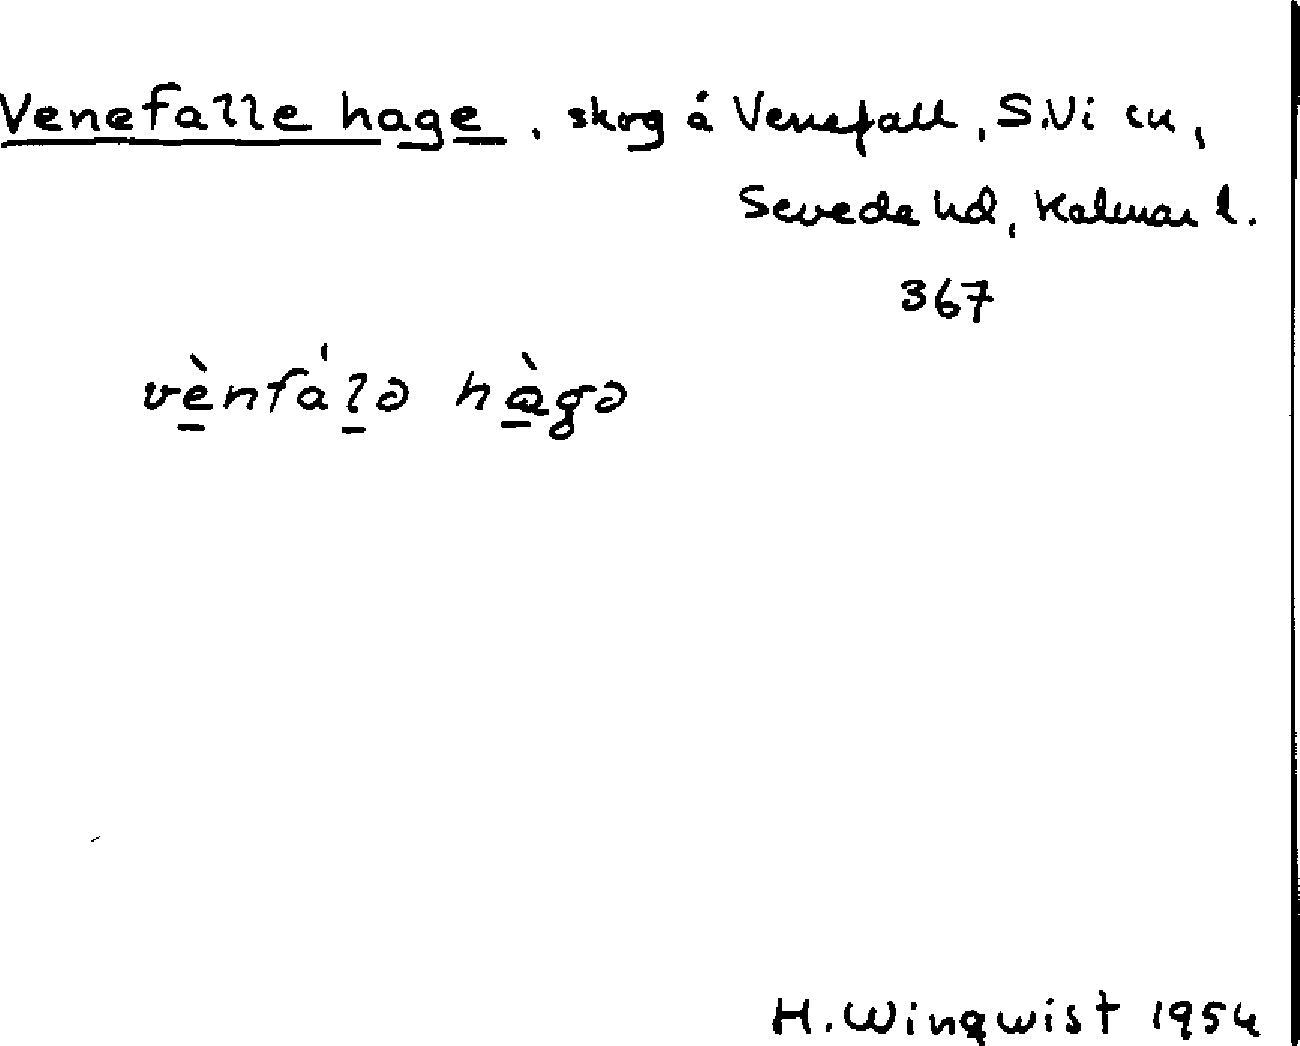 Venefalle hage, skog å Venefall, S.Vi sn,
Sevede hd, Kalmar l.
367
vènfálə hàgə
H. Winqwist 1954